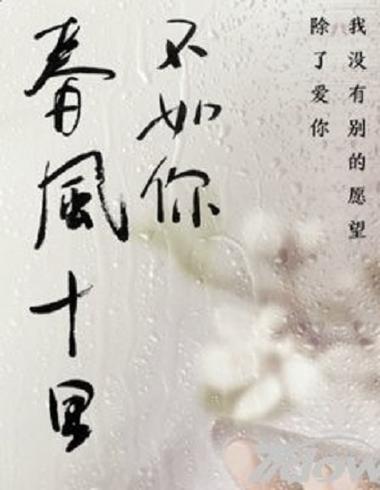 春風十里
不如你
我没有别的愿望
除了爱你